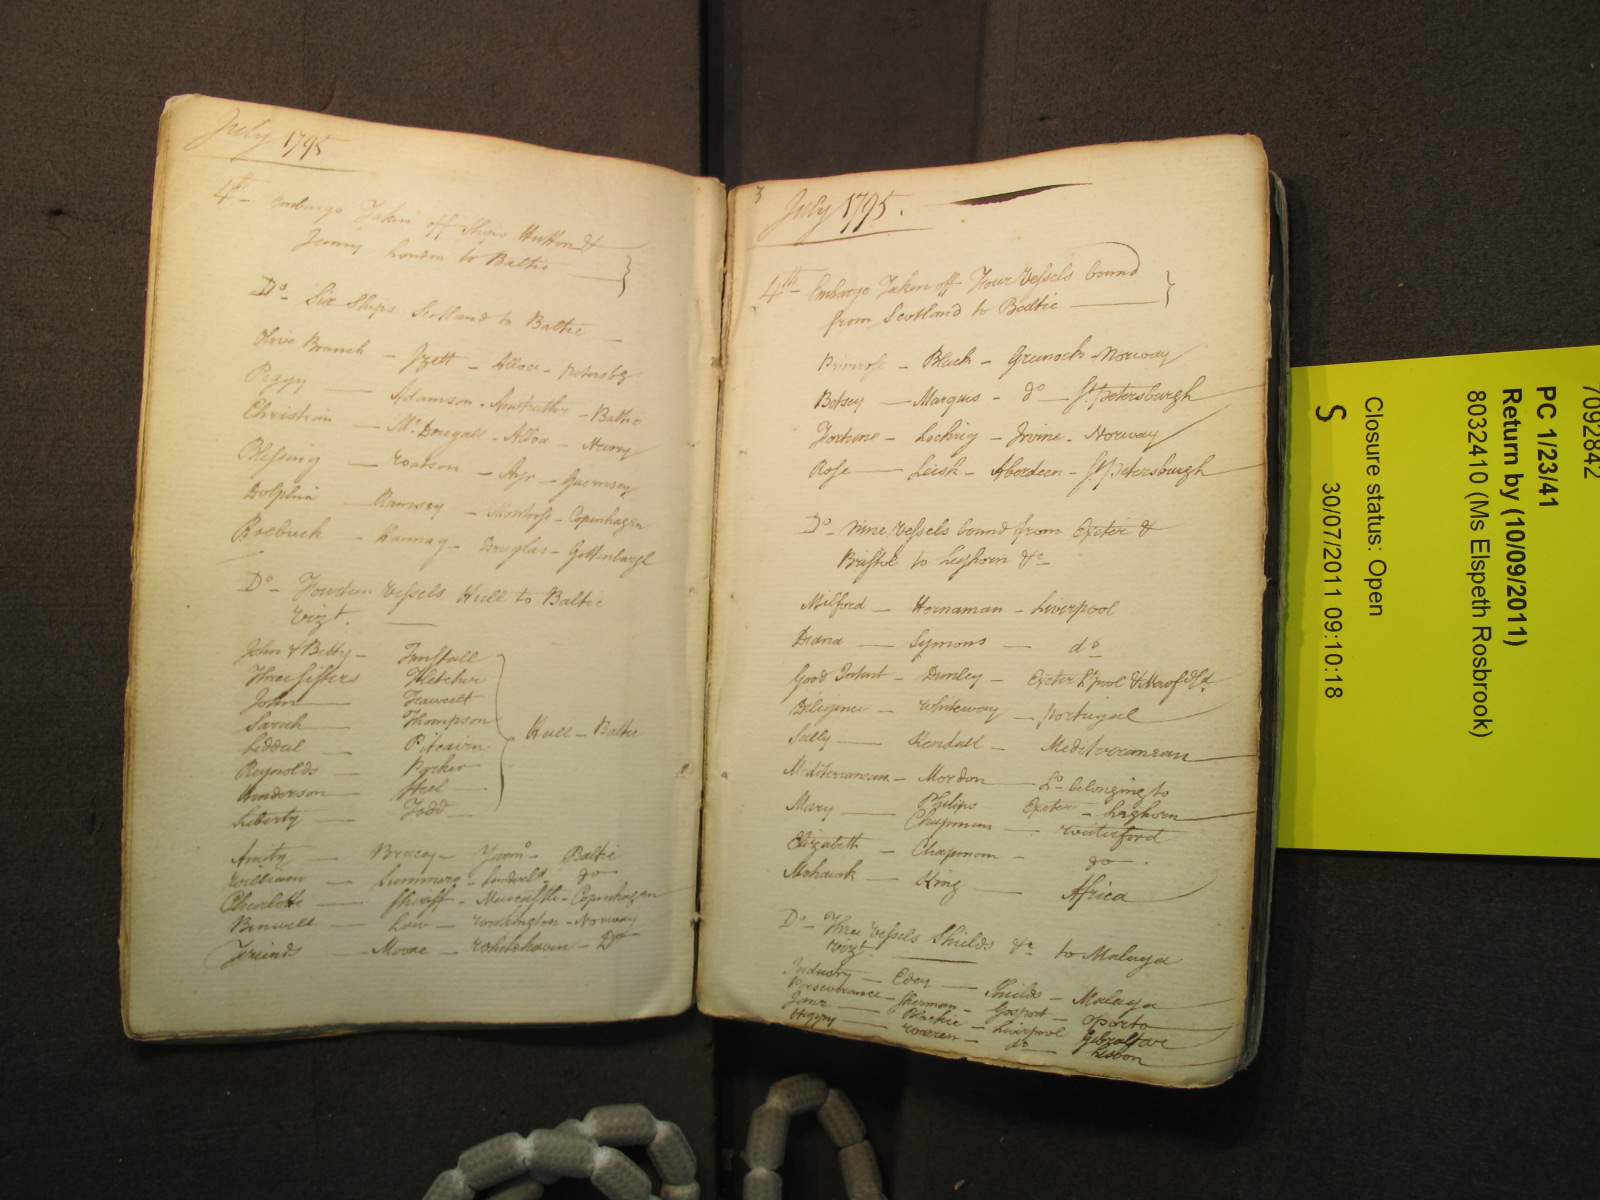 July 1795
4th Embargo Taken off Ships Hutton &
Jenny London to Baltic
Do Six Ships Scotland to Baltic
Olive Branch - Izett - Alloa - Petersbg
Peggy - Adamson - Anstruther - Baltic
Christian - McDougall - Alloa - Newry
Blessing - Watson - Ayr - Guernsey
Dolphin - Ramsey - Montrose - Copenhagen
Roebuck - Hannay - Douglas - Gottenburgh
Do - Fourteen Vessels Hull to Baltic
Vizt.
John & Betty - Tunstall
Three Sisters Fletcher
John Fawcett
Sarah Thompson
Liddal - Pitcairn
Hull - Baltic
Reynolds - Parker
Henderson - Steel
Liberty - Todd
Amity - Bracey - Yarmo - Baltic
William - Summers - do
Charlotte - Shrieff - Newcastle - Copenhagen
Benwell - Law - Workington - Norway
Friends - Moore - Whitehaven - Do
3
July 1795.
4th Embargo Taken off Four Vessels bound
from Scotland to Baltic
Primrose - Black - Greenock - Norway
Betsey - Marquis - do - St Petersburgh
Fortune - Lochrig - Irvine - Norway
Rose - Leisk - Aberdeen - St Petersburgh
Do - Nine Vessels bound from Exeter &
Bristol to Leghorn &c
Milford - Hernaman - Liverpool
Diana - Symons - do
Good Intent - Dunley - Exeter L'pool & Newfdld.
Diligence - Whiteway - Portugal
Sally - Kendall - Mediterranean
Mediterranean - Mordon - Do belonging to
Mary Philips Exeter - Leghorn
Chapman - Waterford
Elizabeth - Chapman - do.
Mohawk - King - Africa
Do - Three Vessels Shields &c to Malaga
Vizt.
Industry - Eden - Shields - Malaga
Perseverance - Sherman - Gosport - Oporto
Jane - Blackie - Liverpool Gibraltar
Happy - Warren - do - Lisbon
7092842
PC 1/23/41
Return by (10/09/2011)
8032410 (Ms Elspeth Rosbrook)
Closure status: Open
S 30/07/2011 09:10:18